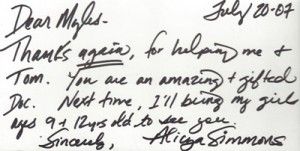 Dear Myles-
July 20-07
Thanks again, for helping me +
Tom. You are an amazing + gifted
Doc. Next time, I'll bring my girl
ages 9 + 12yrs old to see you.
Sincerely, Alicya Simmons